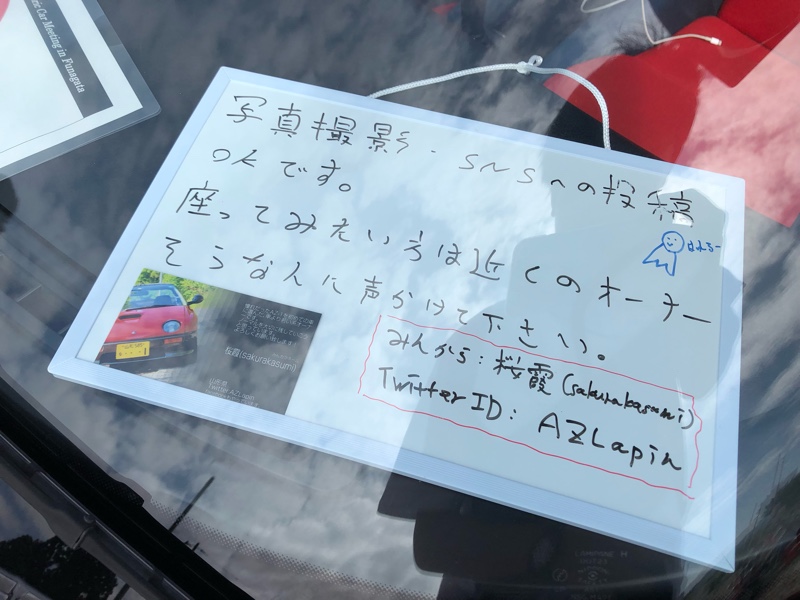 Car Meeting in Funagata
写真撮影・SNSへの投稿
OKです。
座ってみたい方は近くのオーナー
そうな人に声かけて下さい。
はろー
みんカラ:桜霞(sakurakasumi)
TwitterID: AZLapin
桜霞(sakurakasumi)